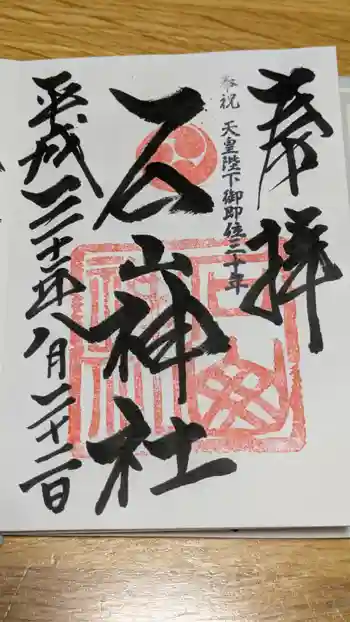 奉拝
奉祝 天皇陛下御即位三十年
山神社
平成三十年八月二十二日